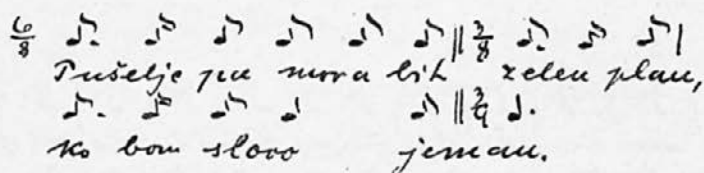 6/8 3/8
Pušelje pa mora bit zelen plau,
3/4
ko bom slovo jemau.